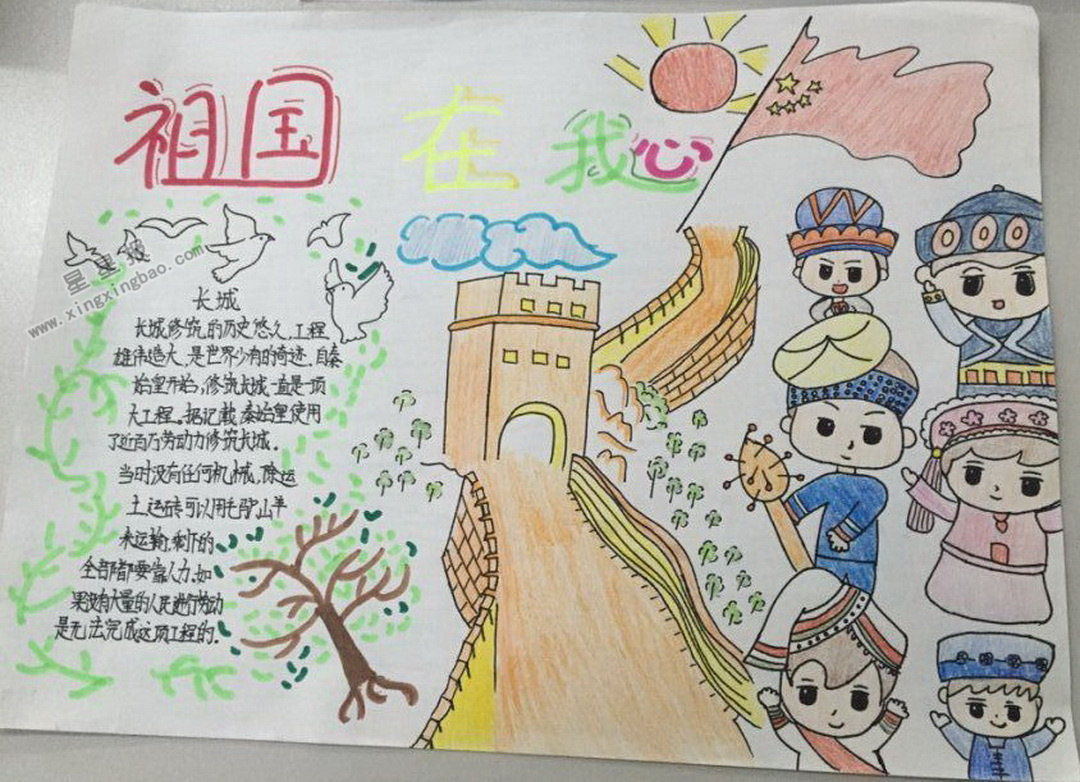 祖国在我心
星星报
www.xingxingbao.com
长城
长城修筑的历史悠久,工程
雄伟造大,是世界少有的奇迹,自秦
始皇开始,修筑长城一直是一项
大工程。据记载,秦始皇使用
了近百万劳动力修筑长城.
当时没有任何机械,除运
土运砖可以用毛驴,山羊
来运输,剩下的
全部都要靠人力,如
果没有大量的人民进行劳动
是无法完成这项工程的.